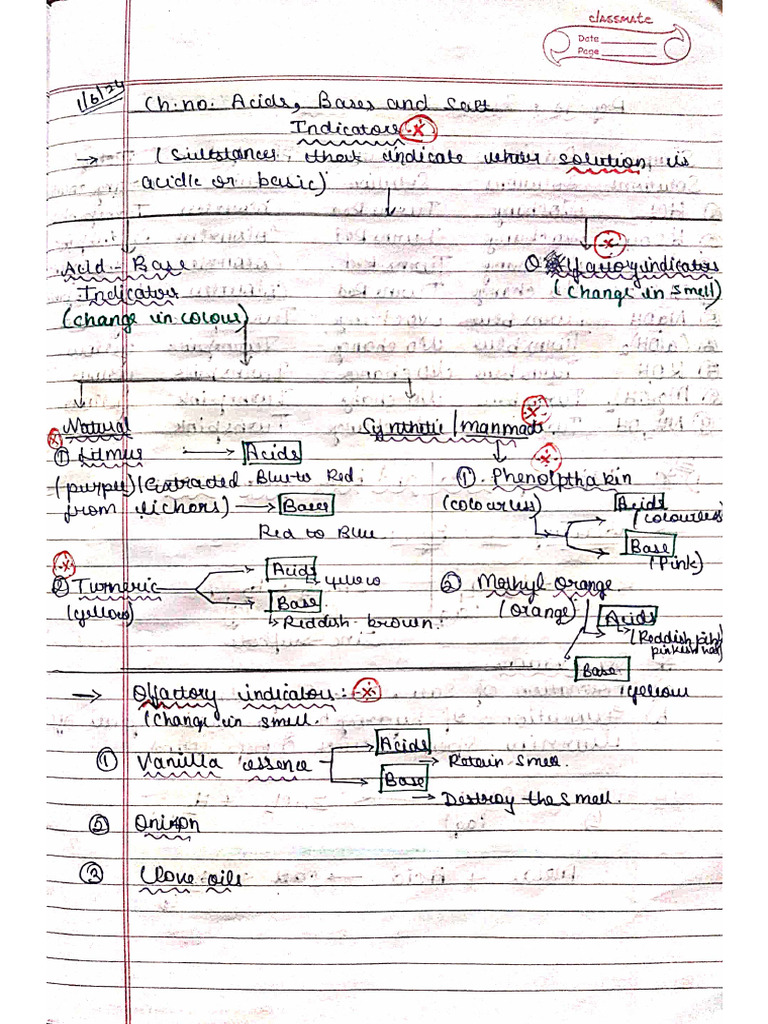 classmate
Date
Page
1/6/24
Ch:no: Acids, Bases and Salt
Indicators
→ (Substances that indicate whether solution is
acidic or basic)
Acid - Base
Indicator
(change in colour)
Olfactory indicators
(change in smell)
Natural
Synthetic / manmade.
① Litmus → Acids
(purple) (Extracted Blue to Red
from lichens) → Bases
Red to Blue
① Phenolpthalein
(colourless)
Acids
(colourless)
Base
(Pink)
② Turmeric
(yellow)
Acids
↳ yellow
Base
↳ Reddish brown.
② Methyl Orange
(Orange)
Acids
Base
yellow
→ Olfactory indicators:
(change in smell.
① Vanilla essence
Acids
→ Retain smell.
Base
→ Destroy the smell.
② Onion
③ Clove oils